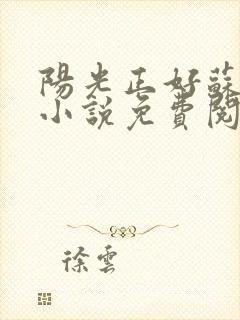 陽光正好蘇
小說免費閱
徐雲